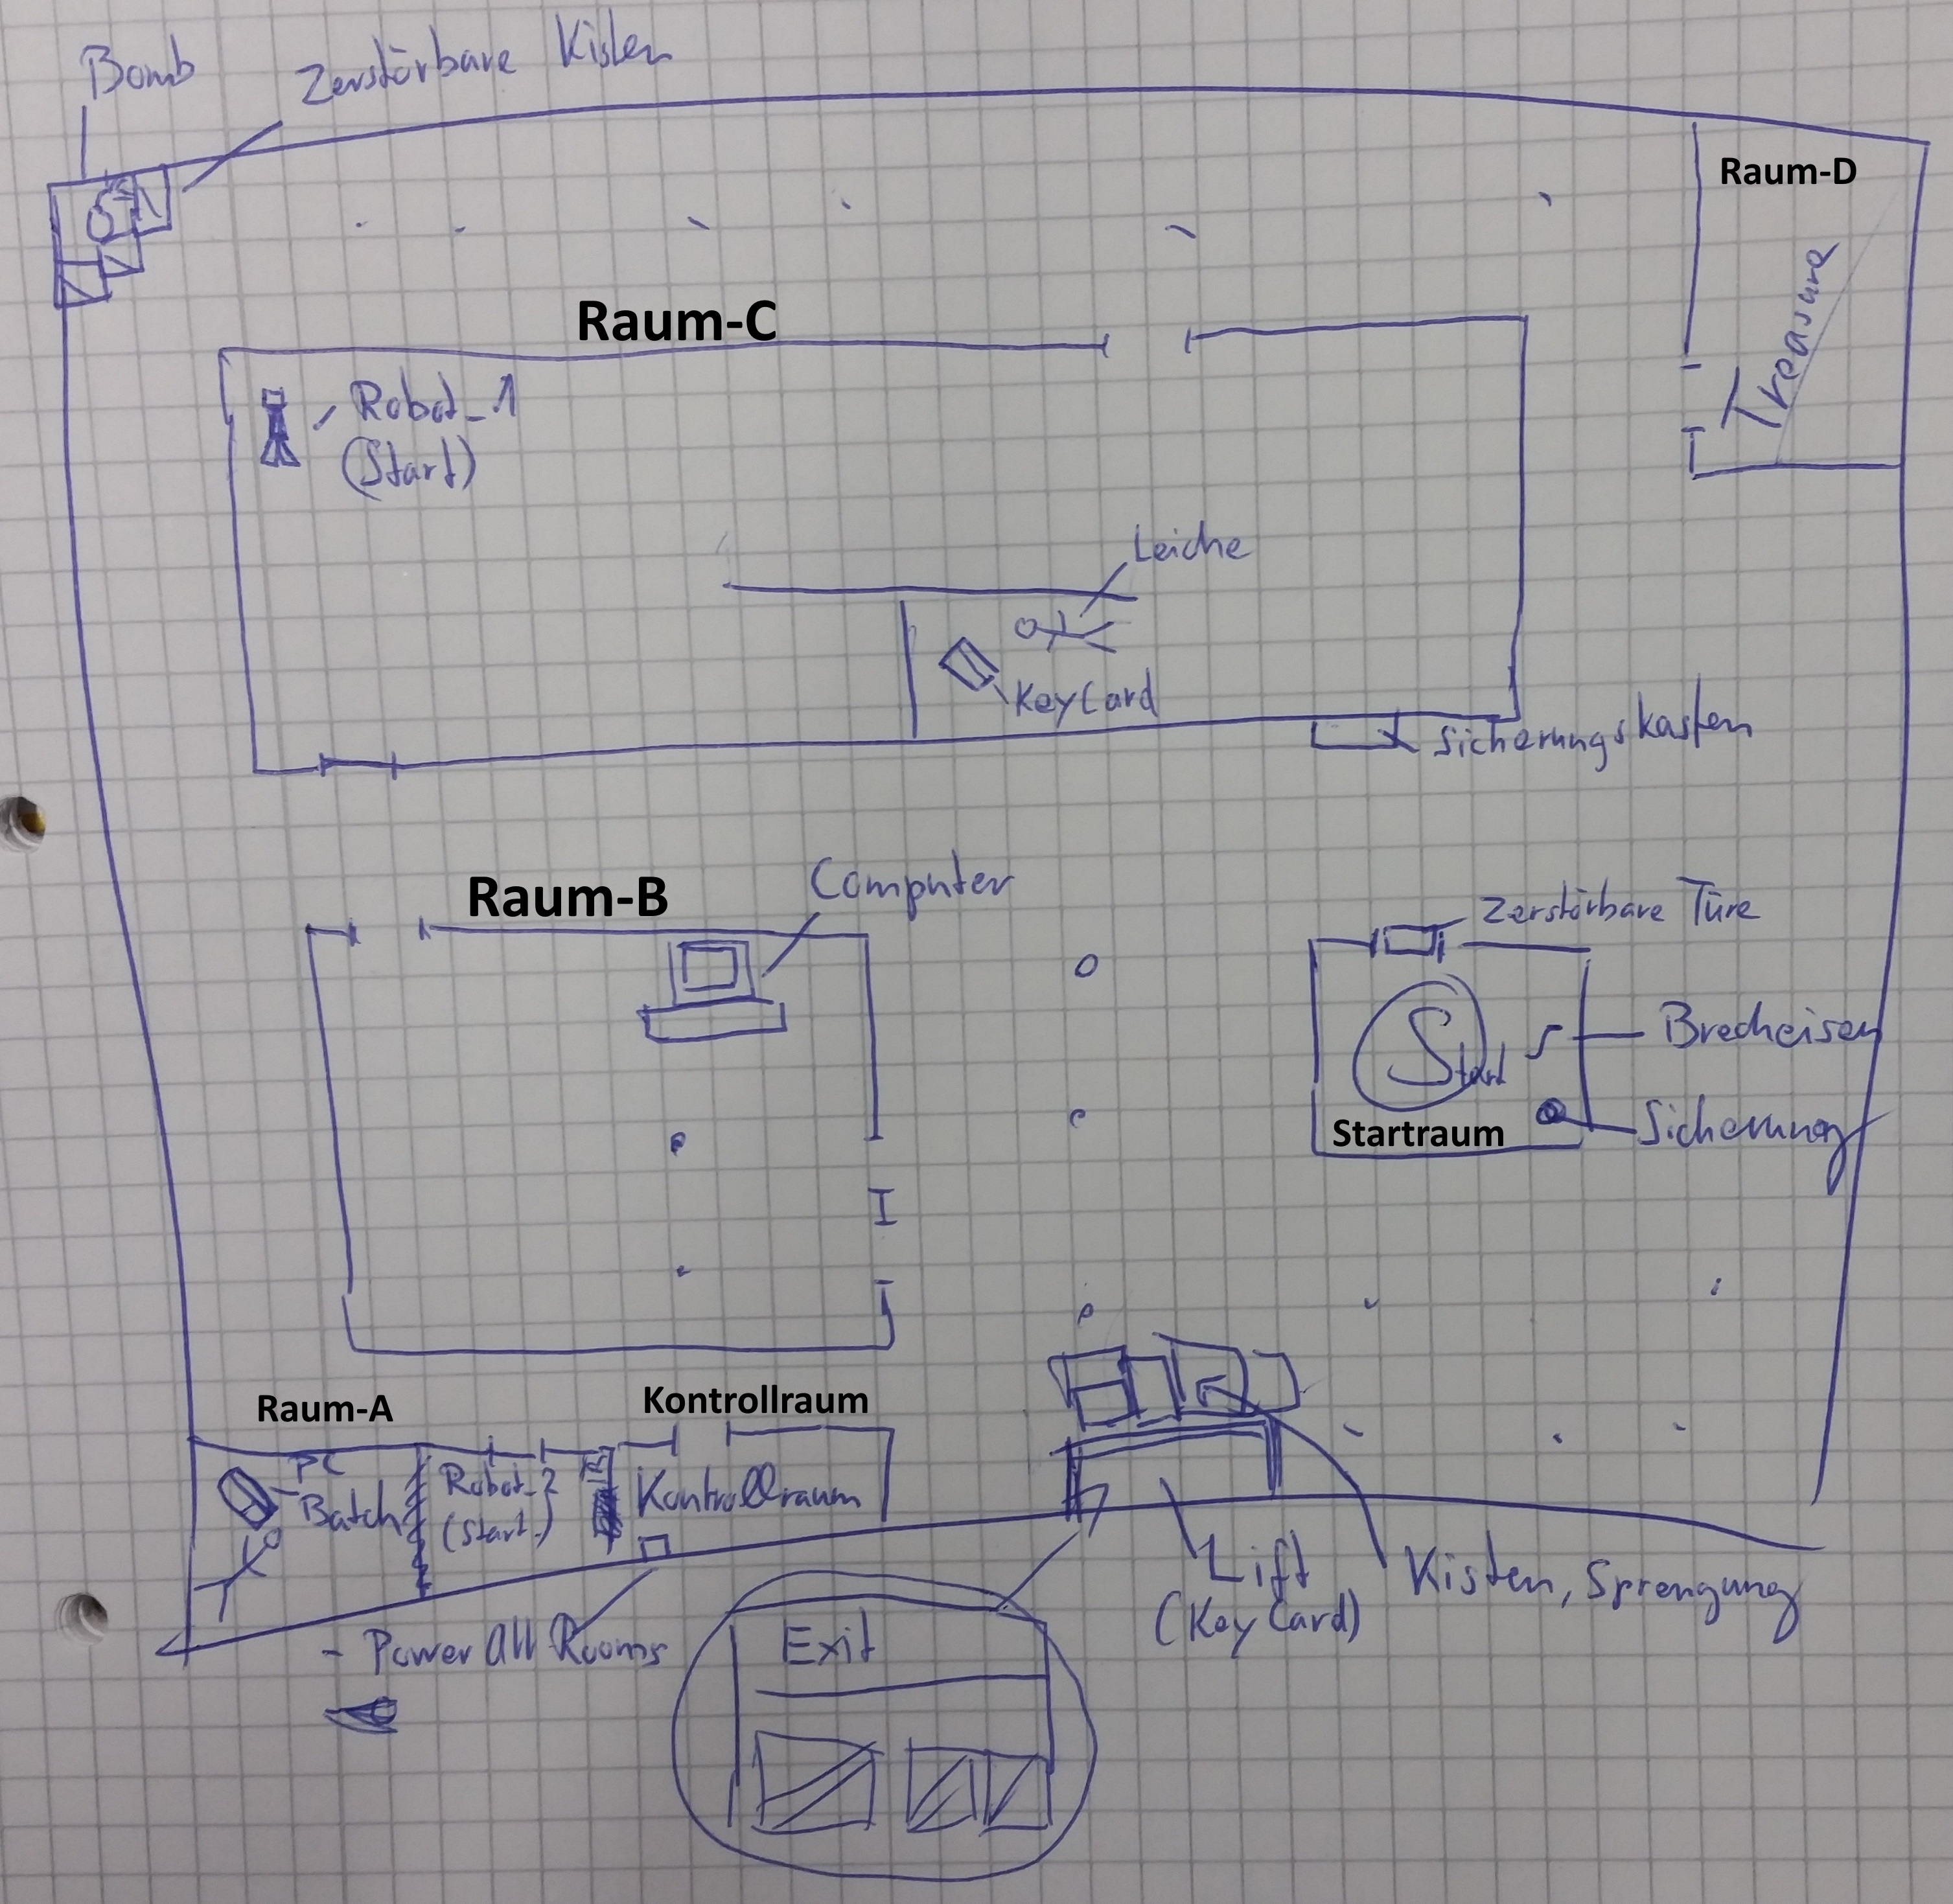 Bomb
Zerstörbare Kisten
Raum-D
Treasure
Raum-C
Robot_1
(Start)
Leiche
KeyCard
Sicherungskasten
Raum-B
Computer
Zerstörbare Türe
Start
Brecheisen
Startraum
Sicherung
Raum-A
Kontrollraum
PC
Batch
Robot_2
(Start)
Kontrollraum
Lift
(KeyCard)
Kisten, Sprengung
- Power All Rooms
Exit